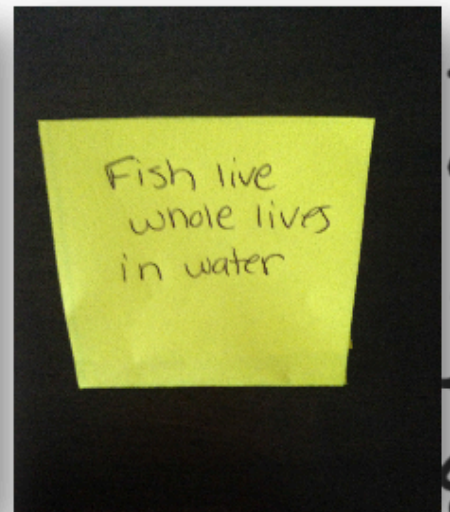 Fish live
whole lives
in water